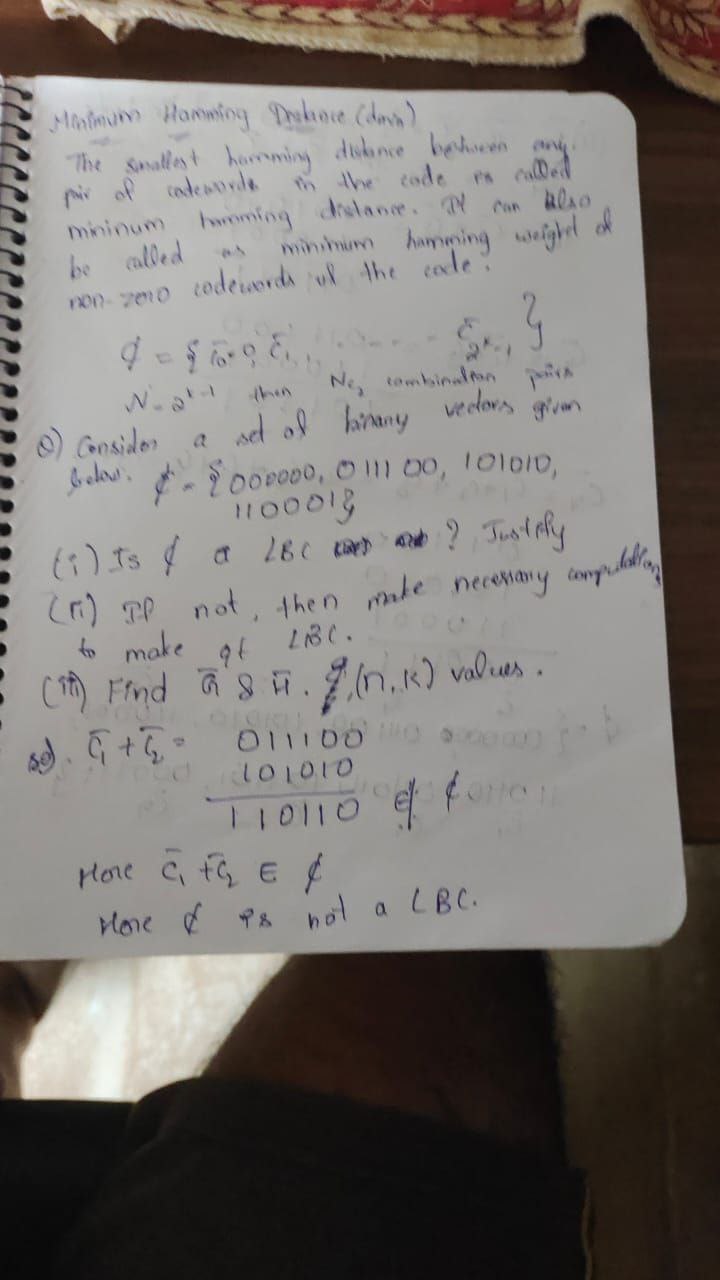 Minimum Hamming Distance (dmin)
The smallest hamming distance between any
pair of codewords in the code is called
mininum hamming distance. It can also
be called as minimum hamming weight of
non-zero codewords of the code.
₵ = { c̄₀=0, c̄₁, ------- c̄_2ᵏ-₁ }
N = 2ᵏ-1 then Nc₂ combination pairs
Q) Consider a set of binary vectors given
below. ₵ = {000000, 011100, 101010,
110001}
(i) Is ₵ a LBC ? Justify
(ii) If not, then make necessary computation
to make it LBC.
(iii) Find Ḡ & H̄. (n, k) values.
sol. C̄₁ + C̄₂ = 011100
101010
110110 ∉ ₵
Here C̄₁ + C̄₂ ∈ ₵
Here ₵ is not a LBC.